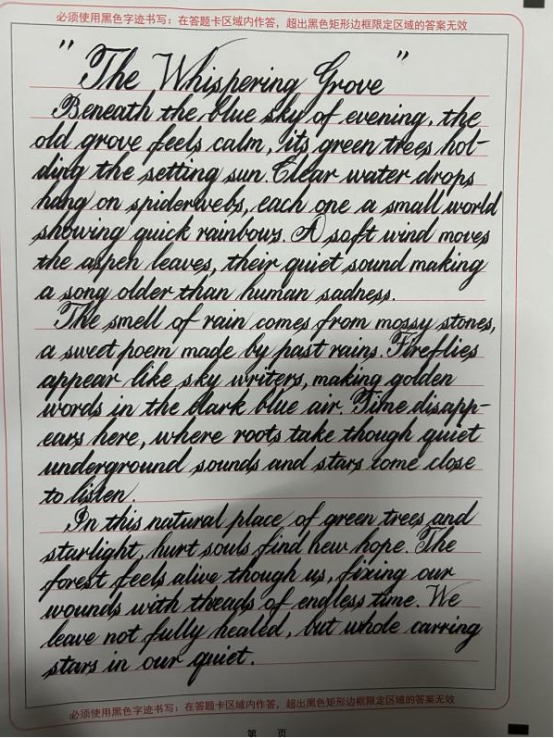 必须使用黑色字迹书写：在答题卡区域内作答，超出黑色矩形边框限定区域的答案无效
"The Whispering Grove"
Beneath the blue sky of evening, the
old grove feels calm, its green trees hol-
ding the setting sun. Clear water drops
hang on spiderwebs, each one a small world
showing quick rainbows. A soft wind moves
the aspen leaves, their quiet sound making
a song older than human sadness.
The smell of rain comes from mossy stones,
a sweet poem made by past rains. Fireflies
appear like sky writers, making golden
words in the dark blue air. Time disapp-
ears here, where roots take though quiet
underground sounds and stars come close
to listen.
In this natural place of green trees and
starlight, hurt souls find new hope. The
forest feels alive though us, fixing our
wounds with theads of endless time. We
leave not fully healed, but whole carring
stars in our quiet.
必须使用黑色字迹书写：在答题卡区域内作答，超出黑色矩形边框限定区域的答案无效
第 页